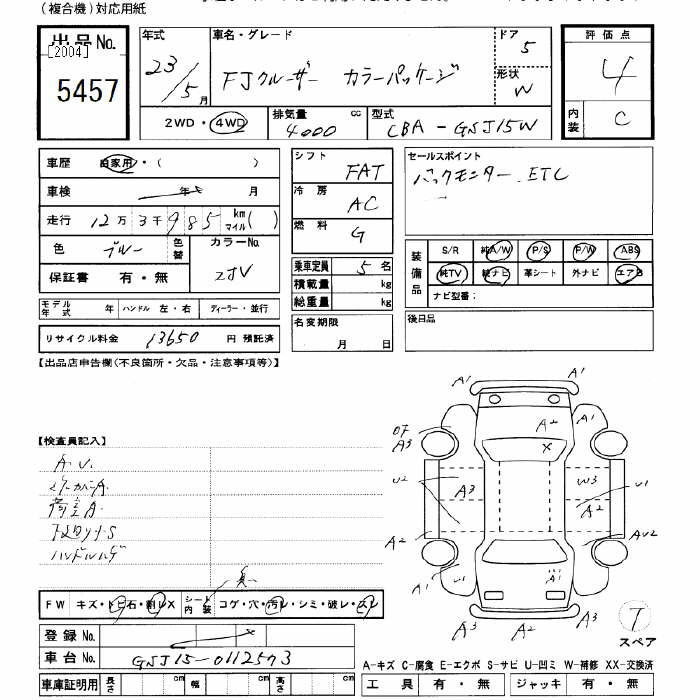 (複合機)対応用紙
出品No.
[2004]
5457
年式
23/5月
車名・グレード
FJクルーザー カラーパッケージ
ドア
5
形状
W
評価点
4
内装
C
2WD・4WD
排気量
4000 cc
型式
CBA-GSJ15W
車歴 自家用・( )
車検 年 月
走行 12万3千985 km マイル( )
色 ブルー 色替
カラーNo.
2JV
保証書 有・無
モデル年式 年 ハンドル 左・右 ディーラー・並行
リサイクル料金 13650 円 預託済
シフト FAT
冷房 AC
燃料 G
乗車定員 5名
積載量 kg
総重量 kg
名変期限
月 日
セールスポイント
バックモニター ETC
装備品
S/R 純A/W P/S P/W ABS
純TV 純ナビ 革シート 外ナビ エアB
ナビ型番:
後日品
【出品店申告欄(不良箇所・欠品・注意事項等)】
【検査員記入】
A.U.
荷室A
下回りサS
ハンドルハゲ
FW キズ・トビ石・割レX シート内装 コゲ・穴・汚レ・シミ・破レ・スレ
登録No.
車台No. GSJ15-0112573
車庫証明用 長さ cm 幅 cm 高さ cm
A1 A1
A1
A3
A2
X
U2
A3
W3
U1
A2
A2
AU2
U1
A1
A1
A3 A3
A2
T
スペア
A-キズ C-腐食 E-エクボ S-サビ U-凹ミ W-補修 XX-交換済
工具 有・無 ジャッキ 有・無